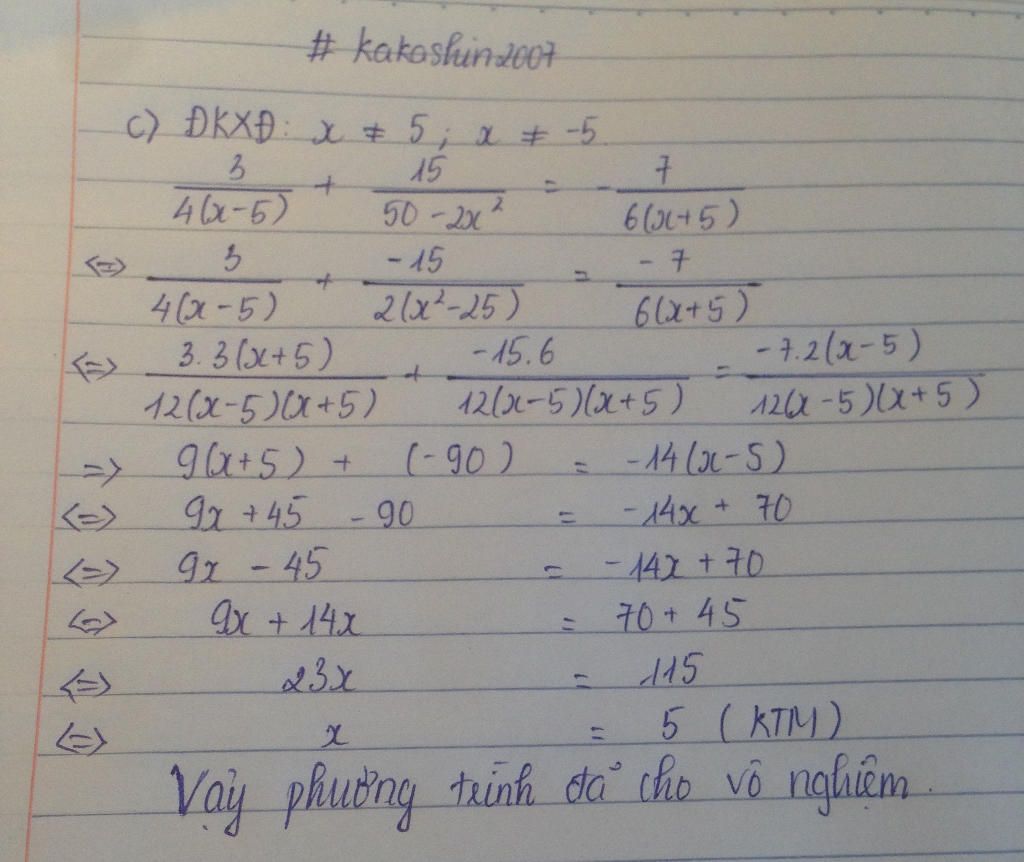 # kakashin2007
c) ĐKXĐ: x ≠ 5 ; x ≠ -5.
3/4(x-5) + 15/50-2x² = - 7/6(x+5)
<=> 3/4(x-5) + -15/2(x²-25) = -7/6(x+5)
<=> 3.3(x+5)/12(x-5)(x+5) + -15.6/12(x-5)(x+5) = -7.2(x-5)/12(x-5)(x+5)
=> 9(x+5) + (-90) = -14(x-5)
<=> 9x +45 -90 = -14x + 70
<=> 9x - 45 = -14x + 70
<=> 9x + 14x = 70 + 45
<=> 23x = 115
<=> x = 5 (KTM)
Vậy phương trình đã cho vô nghiệm.